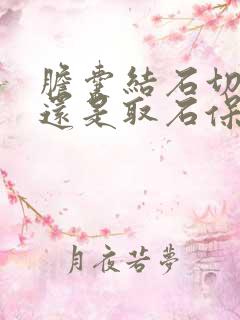 膽囊結石切
還是取石保
月夜若夢